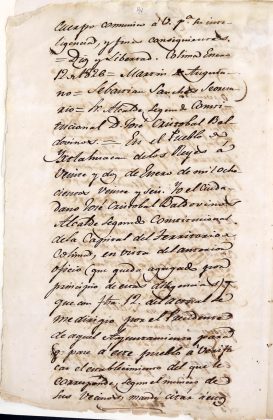 Cuerpo comunico á V. pª su inte-
ligencia, y fines consiguientes.
= Dios y Libertad. Colima Enero
12 de 1826 = Martin de Anguia-
no = Sebastian Sanchez Secreta-
rio = Sr. Alcalde segundo Consti-
tucional D. José Cristobal Bal-
dovinos = En el Pueblo de
Ixtlahuacan de los Reyes á
veinte y dos de Enero de mil ocho-
cientos veinte y seis. Yo el Ciuda-
dano José Cristobal Baldovinos
Alcalde segundo Constitucional
de la Capital del Territorio de
Colima, en vista del anterior
oficio que queda agregado por
principio de estas diligencias, y
que con fha 12 del actual se
me dirigio por el Presidente
de aquel Ayuntamiento para
q. pase á este pueblo á verifi-
car el establecimiento del que le
corresponde, segun el numero de
sus vecinos, mandé citar á